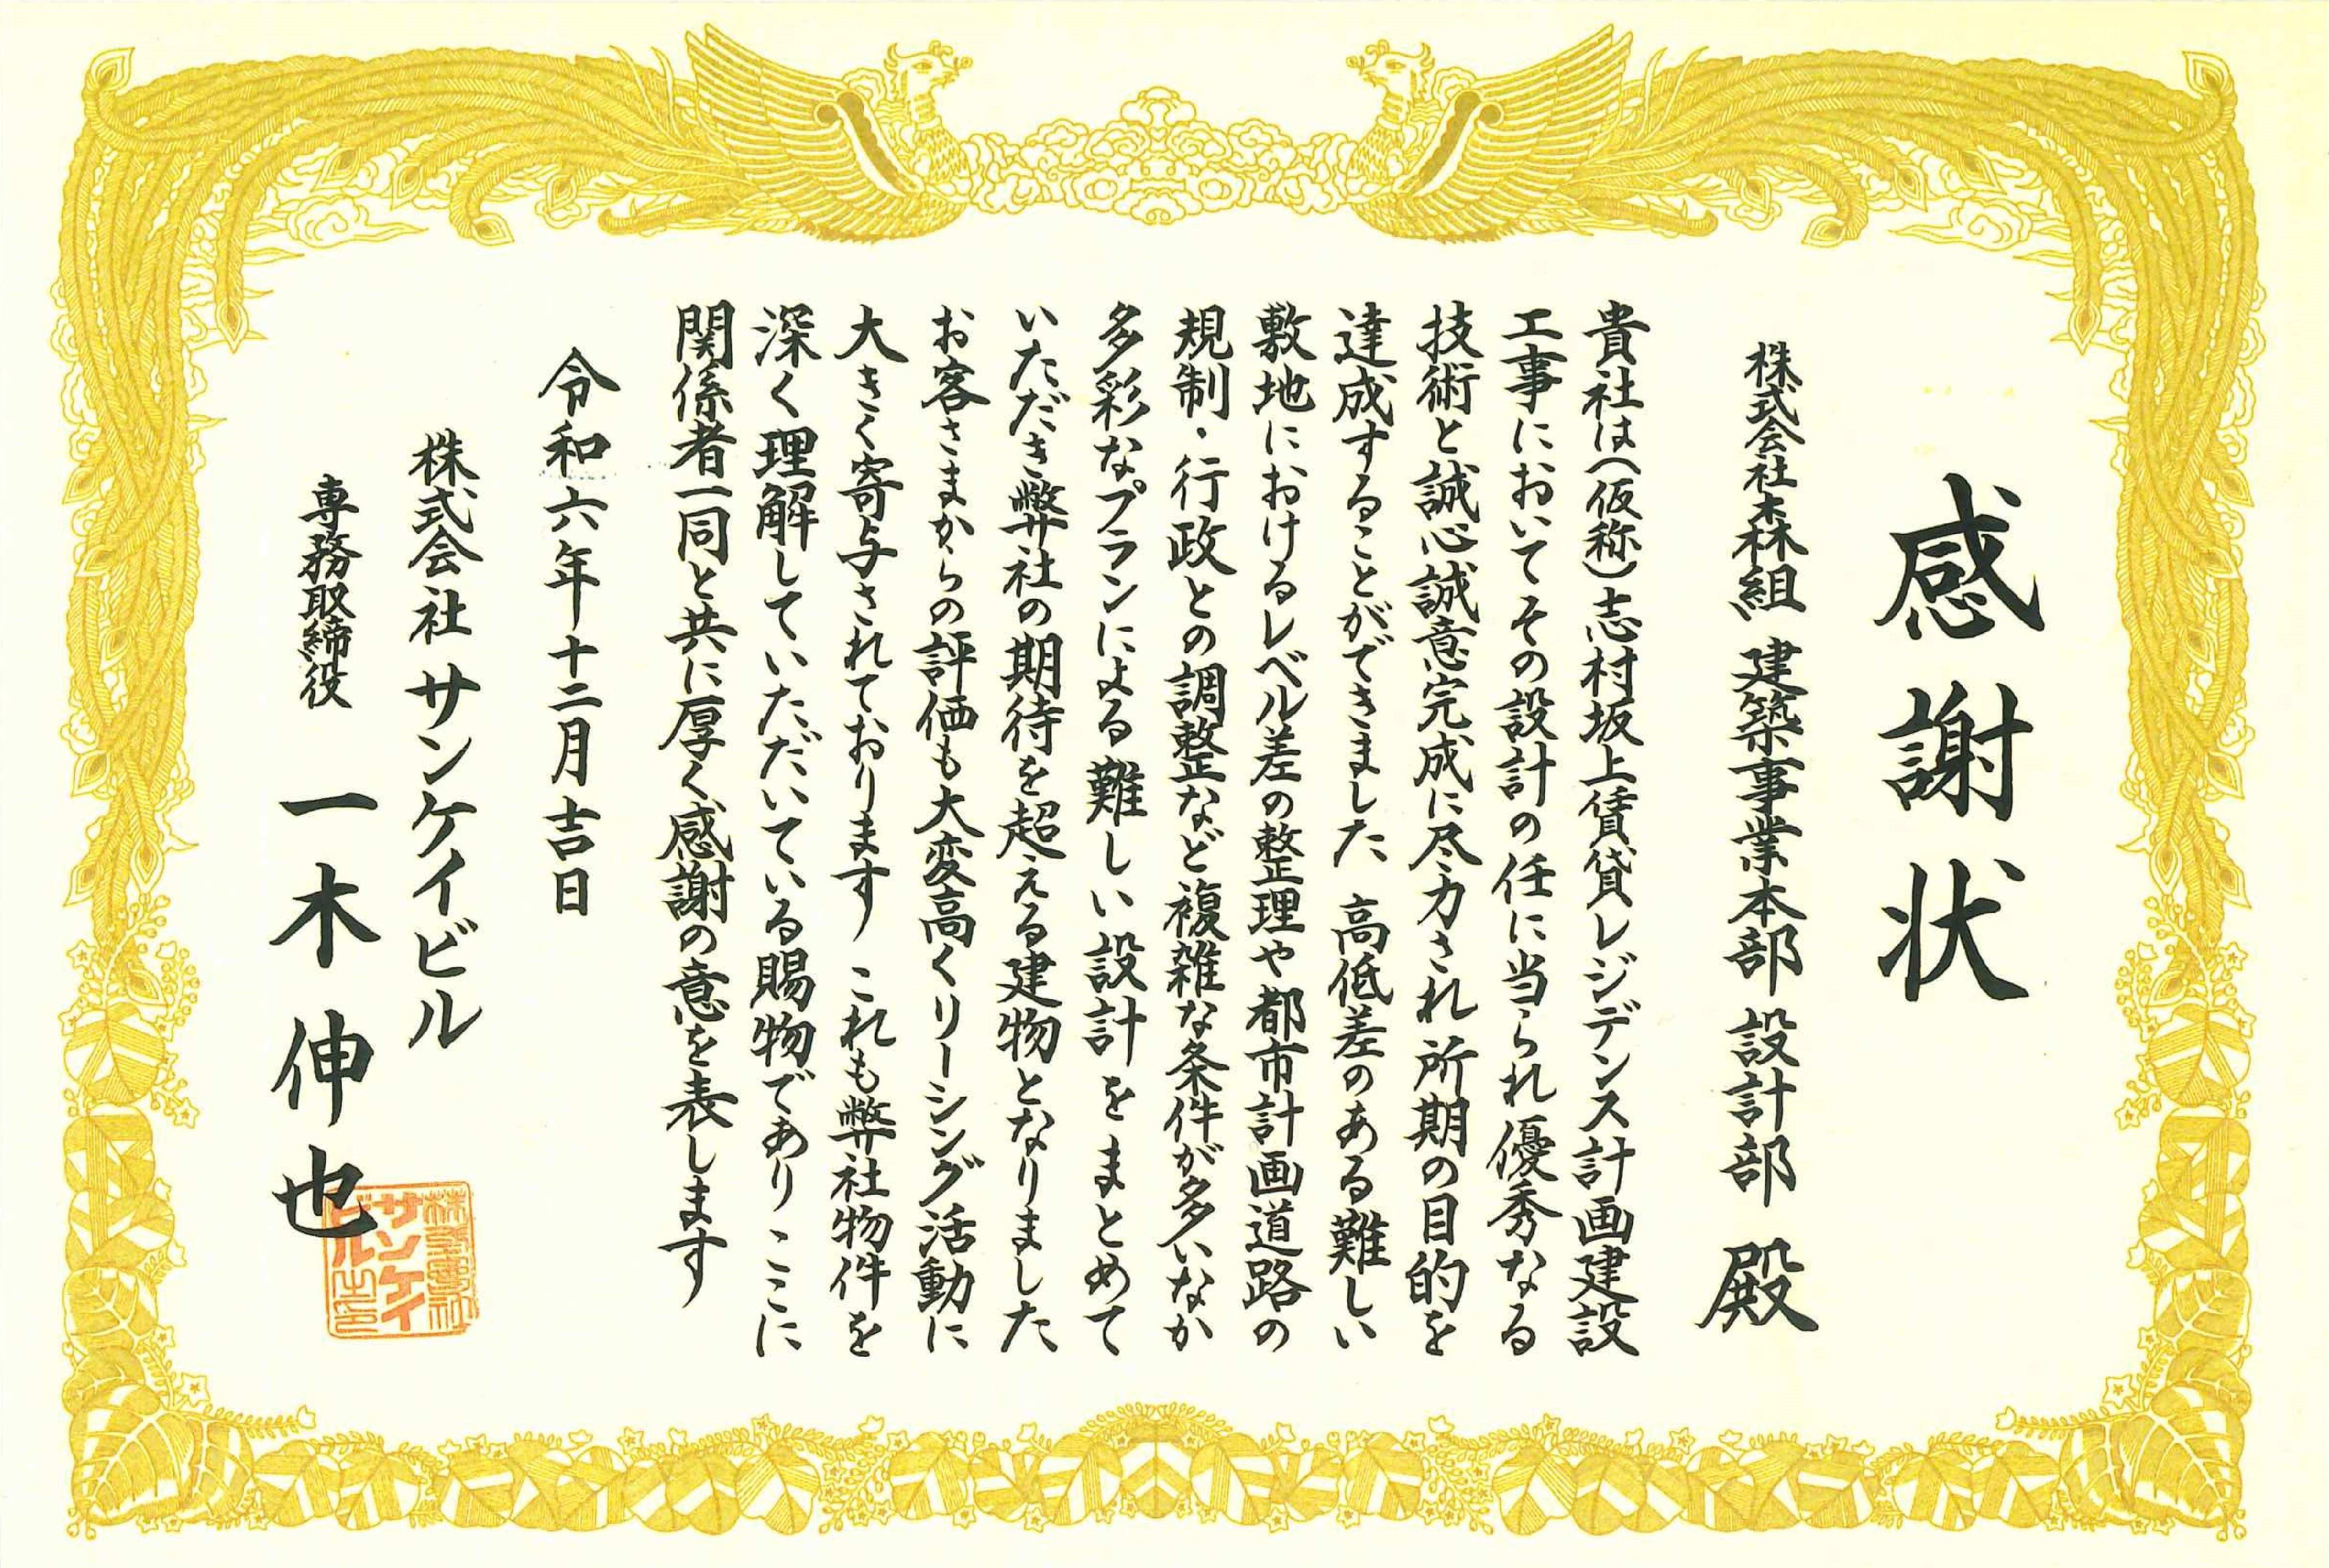 感謝状
株式会社森組 建築事業本部 設計部 殿
貴社は(仮称)志村坂上賃貸レジデンス計画建設
工事においてその設計の任に当られ優秀なる
技術と誠心誠意完成に尽力され所期の目的を
達成することができました 高低差のある難しい
敷地におけるレベル差の整理や都市計画道路の
規制・行政との調整など複雑な条件が多いなか
多彩なプランによる難しい設計をまとめて
いただき弊社の期待を超える建物となりました
お客さまからの評価も大変高くリーシング活動に
大きく寄与されております これも弊社物件を
深く理解していただいている賜物でありここに
関係者一同と共に厚く感謝の意を表します
令和六年十二月吉日
株式会社サンケイビル
専務取締役 一木伸也
株式会社
サンケイ
ビル之印